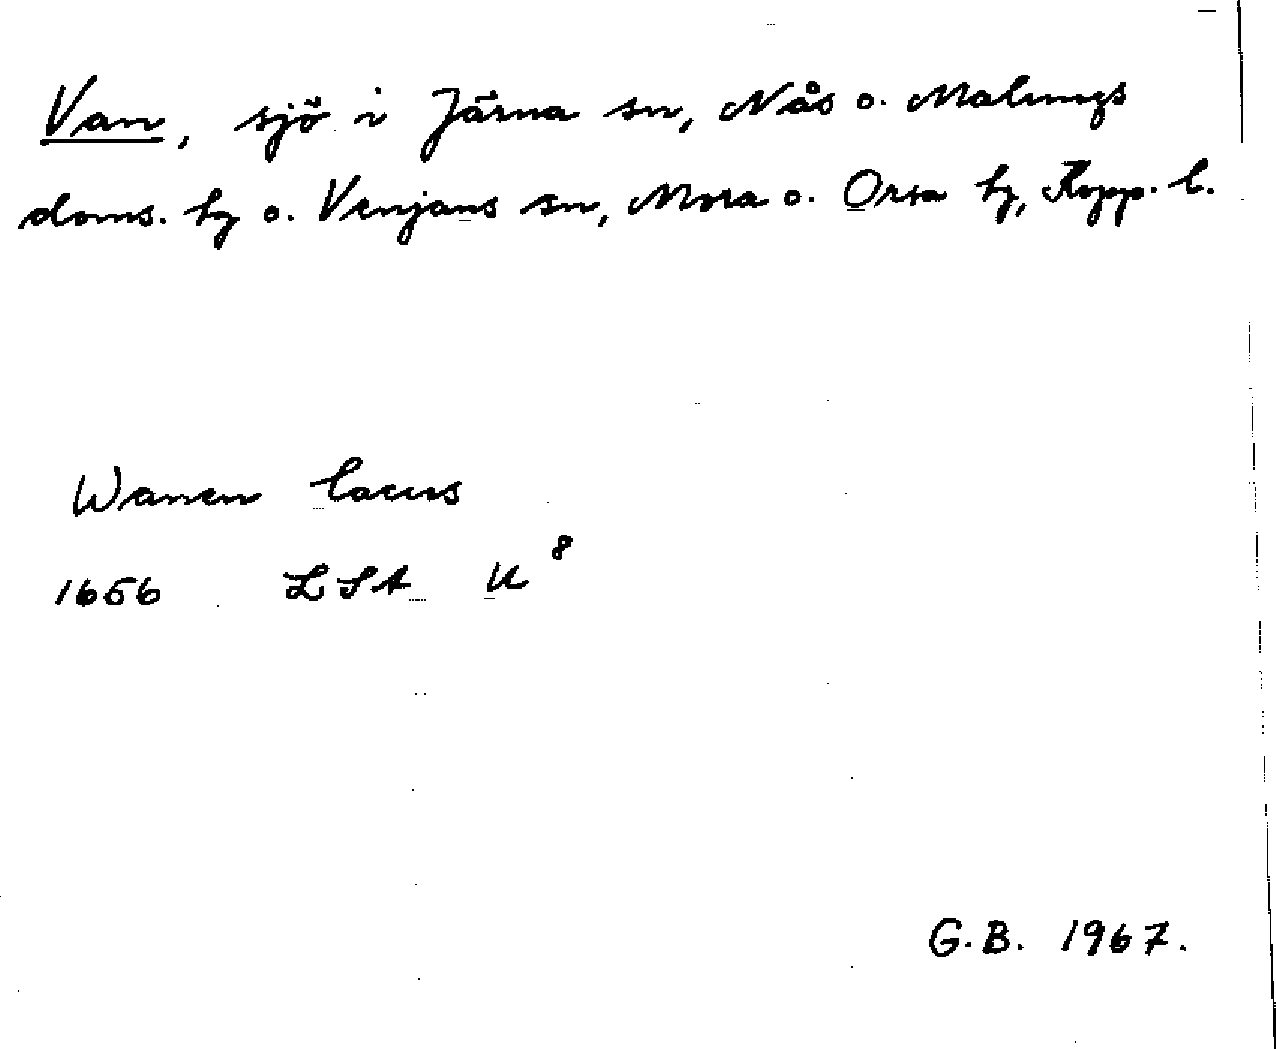 Van, sjö i Järna sn, Nås o. Malungs
doms. hg o. Venjans sn, Mora o. Orsa hg, Kopp. l.
Wanen lacus
1656 LSA U 8
G.B. 1967.